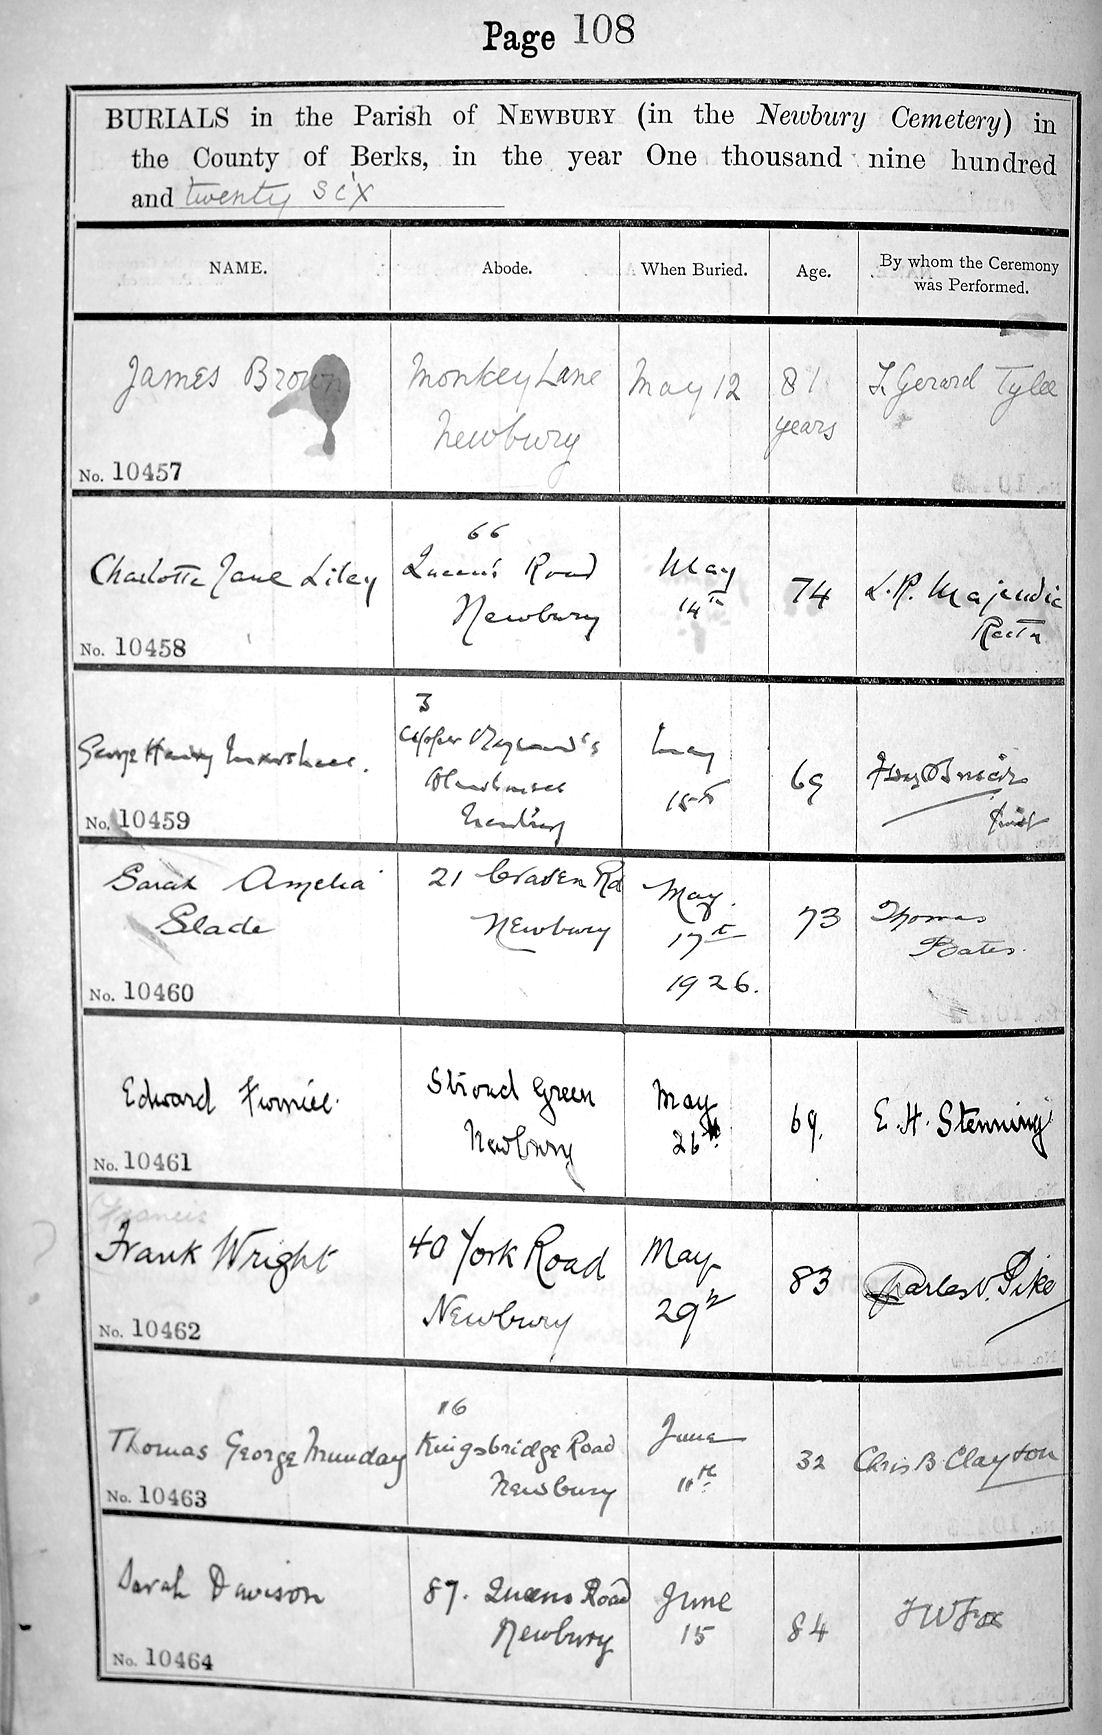 Page 108
BURIALS in the Parish of NEWBURY (in the Newbury Cemetery) in
the County of Berks, in the year One thousand nine hundred
and twenty six
NAME.
Abode.
When Buried.
Age.
By whom the Ceremony
was Performed.
James Brown
No. 10457
Monkey Lane
Newbury
May 12
81
years
Gerard Tylee
Charlotte Jane Liley
No. 10458
66
Queen's Road
Newbury
May
14th
74
L.R. Majendie
Rector
George Henry
No. 10459
3
Upper
May
15th
69
Sarah Amelia
Slade
No. 10460
21 Craven Rd
Newbury
May.
17th
1926.
73
Thomas
Bates.
Edward
No. 10461
Stroud Green
Newbury
May
26th
69.
E. H. Stenning
Francis
Frank Wright
No. 10462
40 York Road
Newbury
May
29th
83
Charles V. Pike
Thomas George Munday
No. 10463
116
Kingsbridge Road
Newbury
June
11th
32
Chris B Clayton
Sarah Davison
No. 10464
87. Queens Road
Newbury
June
15
84
F W Fox